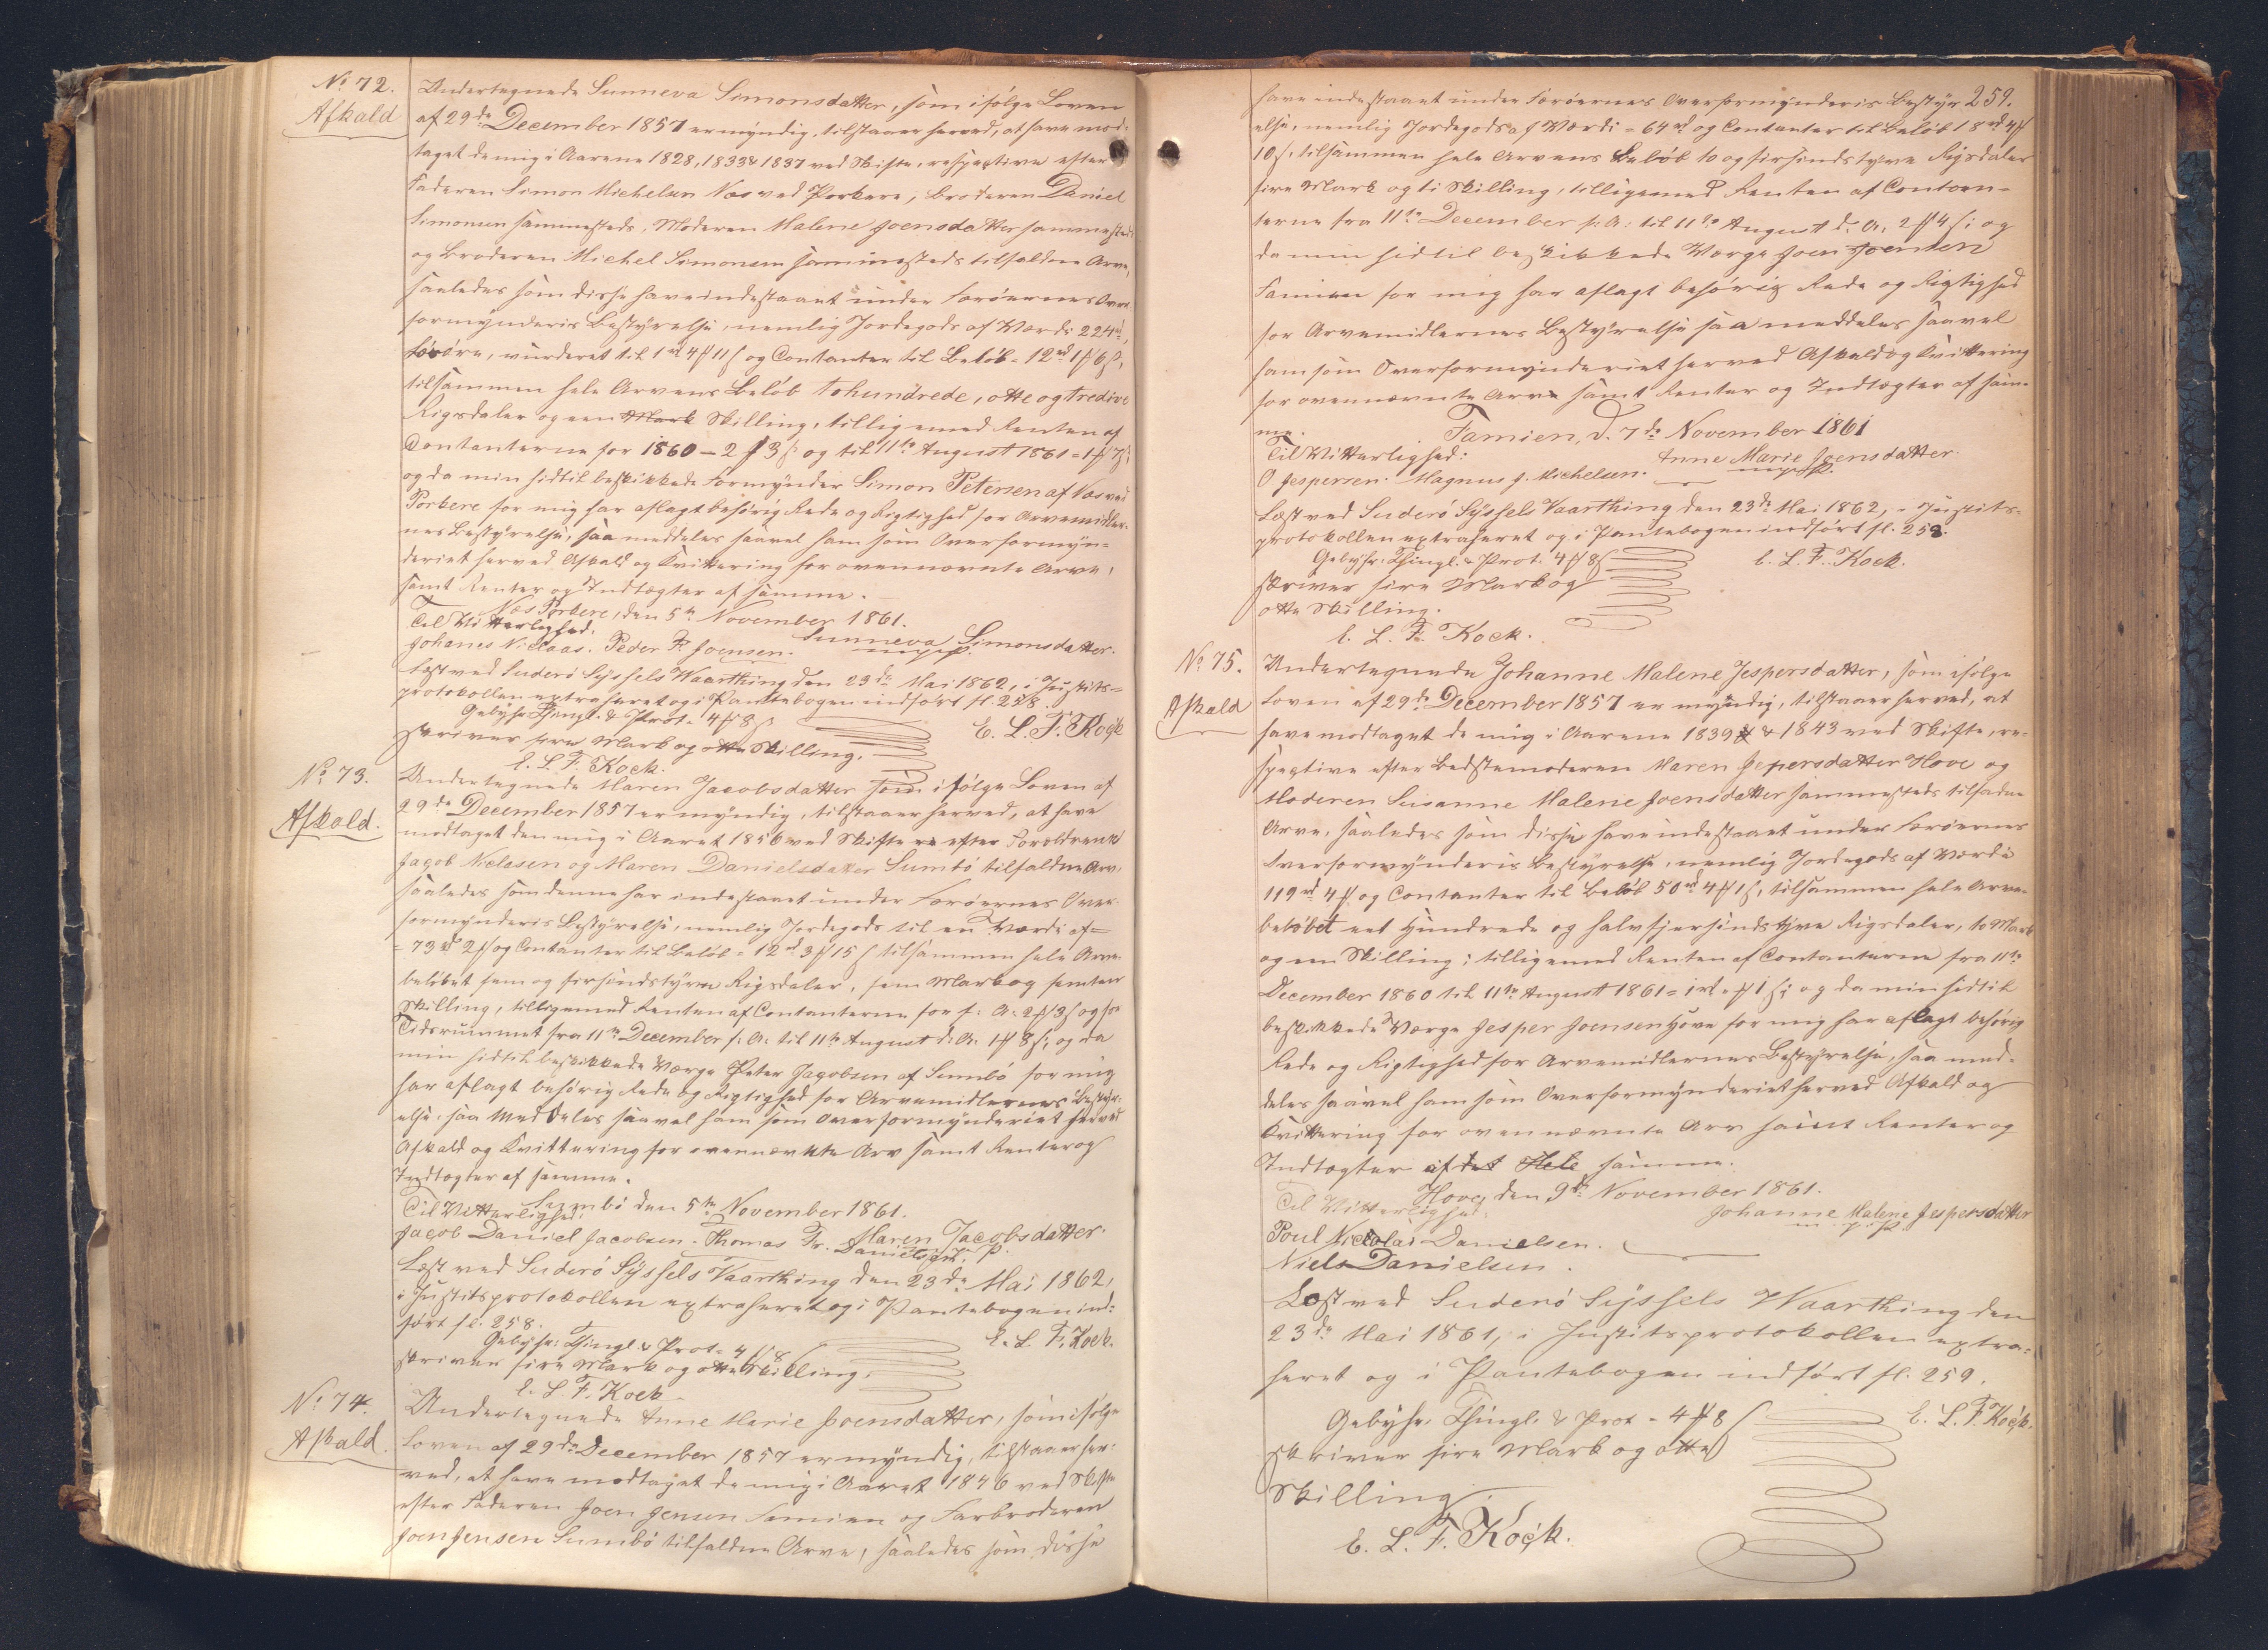 No 72.
Afkald
Undertegnede Sunneva Simonsdatter, som ifølge Loven
af 29de December 1857 er myndig, tilstaaer herved, at have mod-
taget de mig i Aarene 1828, 1833 & 1837 ved Skifte, respective efter
Faderen Simon Michelsen Næs ved Porkere, Broderen Daniel
Simonsen sammesteds, Moderen Malene Joensdatter sammesteds
og Broderen Michel Simonsen sammesteds tilfaldne Arve,
saaledes som disse have indestaaet under Færøernes Over-
formynderis Bestyrelse, nemlig Jordegods af Værdi 224rd,
vurderet til 1rd 4 # 11 s og Contanter til Beløb = 12rd 1 # 6 s,
tilsammen hele Arvens Beløb tohundrede, otte og tredive
Rigsdaler og een Mark Skilling, tilligemed Renten af
Contanterne for 1860 - 2 # 3 s og til 11te August 1861 = 1 # 7 s;
og da min hidtil beskikkede Formynder Simon Petersen af Næs ved
Porkere for mig har aflagt behørig Rede og Rigtighed for Arvemidler-
nes Bestyrelse, saa meddeles saavel ham som Overformyn-
deriet herved Afkald og Kvittering for ovennævnte Arve,
samt Renter og Indtægter af samme.
Næs Porkere, den 5te November 1861.
Til Vitterlighed:
Sunneva Simonsdatter.
Johanes Niclaas. Peder Fr Joensen.
m. p. P.
Læst ved Suderø Syssels Vaarthing den 23de Mai 1862, i Justits-
protokollen extraheret og i Pantebogen indført fl. 258.
Gebyhr: Thingl. & Prot. 4 # 8 s
E. L. F. Kock
skriver fire Mark og otte Skilling.
E. L. F. Kock.
No 73.
Afkald.
Undertegnede Maren Jacobsdatter som ifølge Loven af
29de December 1857 er myndig, tilstaaer herved, at have
modtaget den mig i Aaret 1856 ved Skifte re efter Forældrene
Jacob Nielesen og Maren Danielsdatter Sumbø tilfaldne Arv,
saaledes som denne har indestaaet under Færøernes Over-
formynderis Bestyrelse, nemlig Jordegods til en Værdi af =
= 73rd 2 # og Contanter til Beløb = 12rd 3 # 15 s tilsammen hele Arve-
beløbet fem og firsindstyve Rigsdaler, fem Mark og femten
Skilling, tilligemed Renten af Contanterne for f. A. 2 # 3 s og for
Tidsrummet fra 11te December f. A. til 11te August d. A. 1 # 8 s; og da
min hidtil beskikkede Værge Peter Jagobsen af Sumbø for mig
har aflagt behørig Rede og Rigtighed for Arvemidlernes Bestyr-
else, saa meddeles saavel ham som Overformynderiet herved
Afkald og Kvittering for ovennævnte Arv samt Renter og
Indtægter af samme.
Sumbø den 5te November 1861.
Til Vitterlighed:
Maren Jacobsdatter.
Jacob Daniel Jacobsen. Thomas Fr. Danielsen.
m. p. P.
Læst ved Suderø Syssels Vaarthing den 23de Mai 1862,
i Justitsprotokollen extraheret og i Pantebogen ind-
ført fl. 258.
Gebyhr: Thingl. & Prot. = 4 # 8 s
E. L. F. Kock.
skriver fire Mark og otte Skilling.
E. L. F. Kock
No 74.
Afkald.
Undertegnede Anne Marie Joensdatter, som ifølge
Loven af 29de December 1857 er myndig, tilstaaer her-
ved, at have modtaget de mig i Aaret 1846 ved Skifte
efter Faderen Joen Jensen Famien og Farbroderen
Joen Jensen Sumbø tilfaldne Arve, saaledes som disse
259.
have indestaaet under Færøernes Overformynderis Bestyr-
else, nemlig Jordegods af Værdi = 64rd og Contanter til Beløb 18rd 4 #
10 s, tilsammen hele Arvens Beløb to og firsindstyve Rigsdaler
fire Mark og ti Skilling, tilligemed Renten af Contan-
terne fra 11te December f. A. til 11te August d. A. 2 # 4 s; og
da min hidtil beskikkede Værge Joen Joensen
Famien for mig har aflagt behørig Rede og Rigtighed
for Arvemidlernes Bestyrelse saa meddeles saavel
ham som Overformynderiet herved Afkald og Kvittering
for ovennævnte Arve samt Renter og Indtægter af sam-
me.
Famien, d. 7de November 1861
Til Vitterlighed:
Anne Marie Joensdatter.
O Jespersen. Magnus J. Michelsen.
m. p. P.
Læst ved Suderø Syssels Vaarthing den 23de Mai 1862, i Justits-
protokollen extraheret og i Pantebogen indført fl. 259.
Gebyhr: Thingl. & Prot. 4 # 8 s
E. L. F. Kock.
skriver fire Mark og
otte Skilling.
E. L. F. Kock.
No 75.
Afkald
Undertegnede Johanne Malene Jespersdatter, som ifølge
Loven af 29de December 1857 er myndig, tilstaaer herved, at
have modtaget de mig i Aarene 1839 & 1843 ved Skifte, re-
spective efter Bedstemoderen Maren Jepersdatter Hove og
Moderen Susanne Malene Joensdatter sammesteds tilfaldne
Arve, saaledes som disse have indestaaet under Færøernes
Overformynderis Bestyrelse, nemlig Jordegods af Værdi
119rd 4 # og Contanter til Beløb 50rd 4 # 1 s, tilsammen hele Arve-
beløbet eet Hundrede og halvfjersindstyve Rigsdaler, to Mark
og een Skilling; tilligemed Renten af Contanterne fra 11te
December 1860 til 11te August 1861 = 1rd " # 1 s; og da min hidtil
beskikkede Værge Jesper Joensen Hove for mig har aflagt behørig
Rede og Rigtighed for Arvemidlernes Bestyrelse, saa med-
deles saavel ham som Overformynderiet herved Afkald og
Kvittering for ovennævnte Arv samt Renter og
Indtægter af det Hele samme.
Hove, den 9de November 1861.
Til Vitterlighed:
Johanne Malene Jespersdatter
m. p. P.
Poul Nicolai Danielsen.
Niels Danielsen.
Læst ved Suderø Syssels Vaarthing den
23de Mai 1861, i Justitsprotokollen extra-
heret og i Pantebogen indført fl. 259.
Gebyhr. Thingl. & Prot - 4 # 8 s
E. L. F. Kock.
skriver fire Mark og otte
Skilling.
E. L. F. Kock.